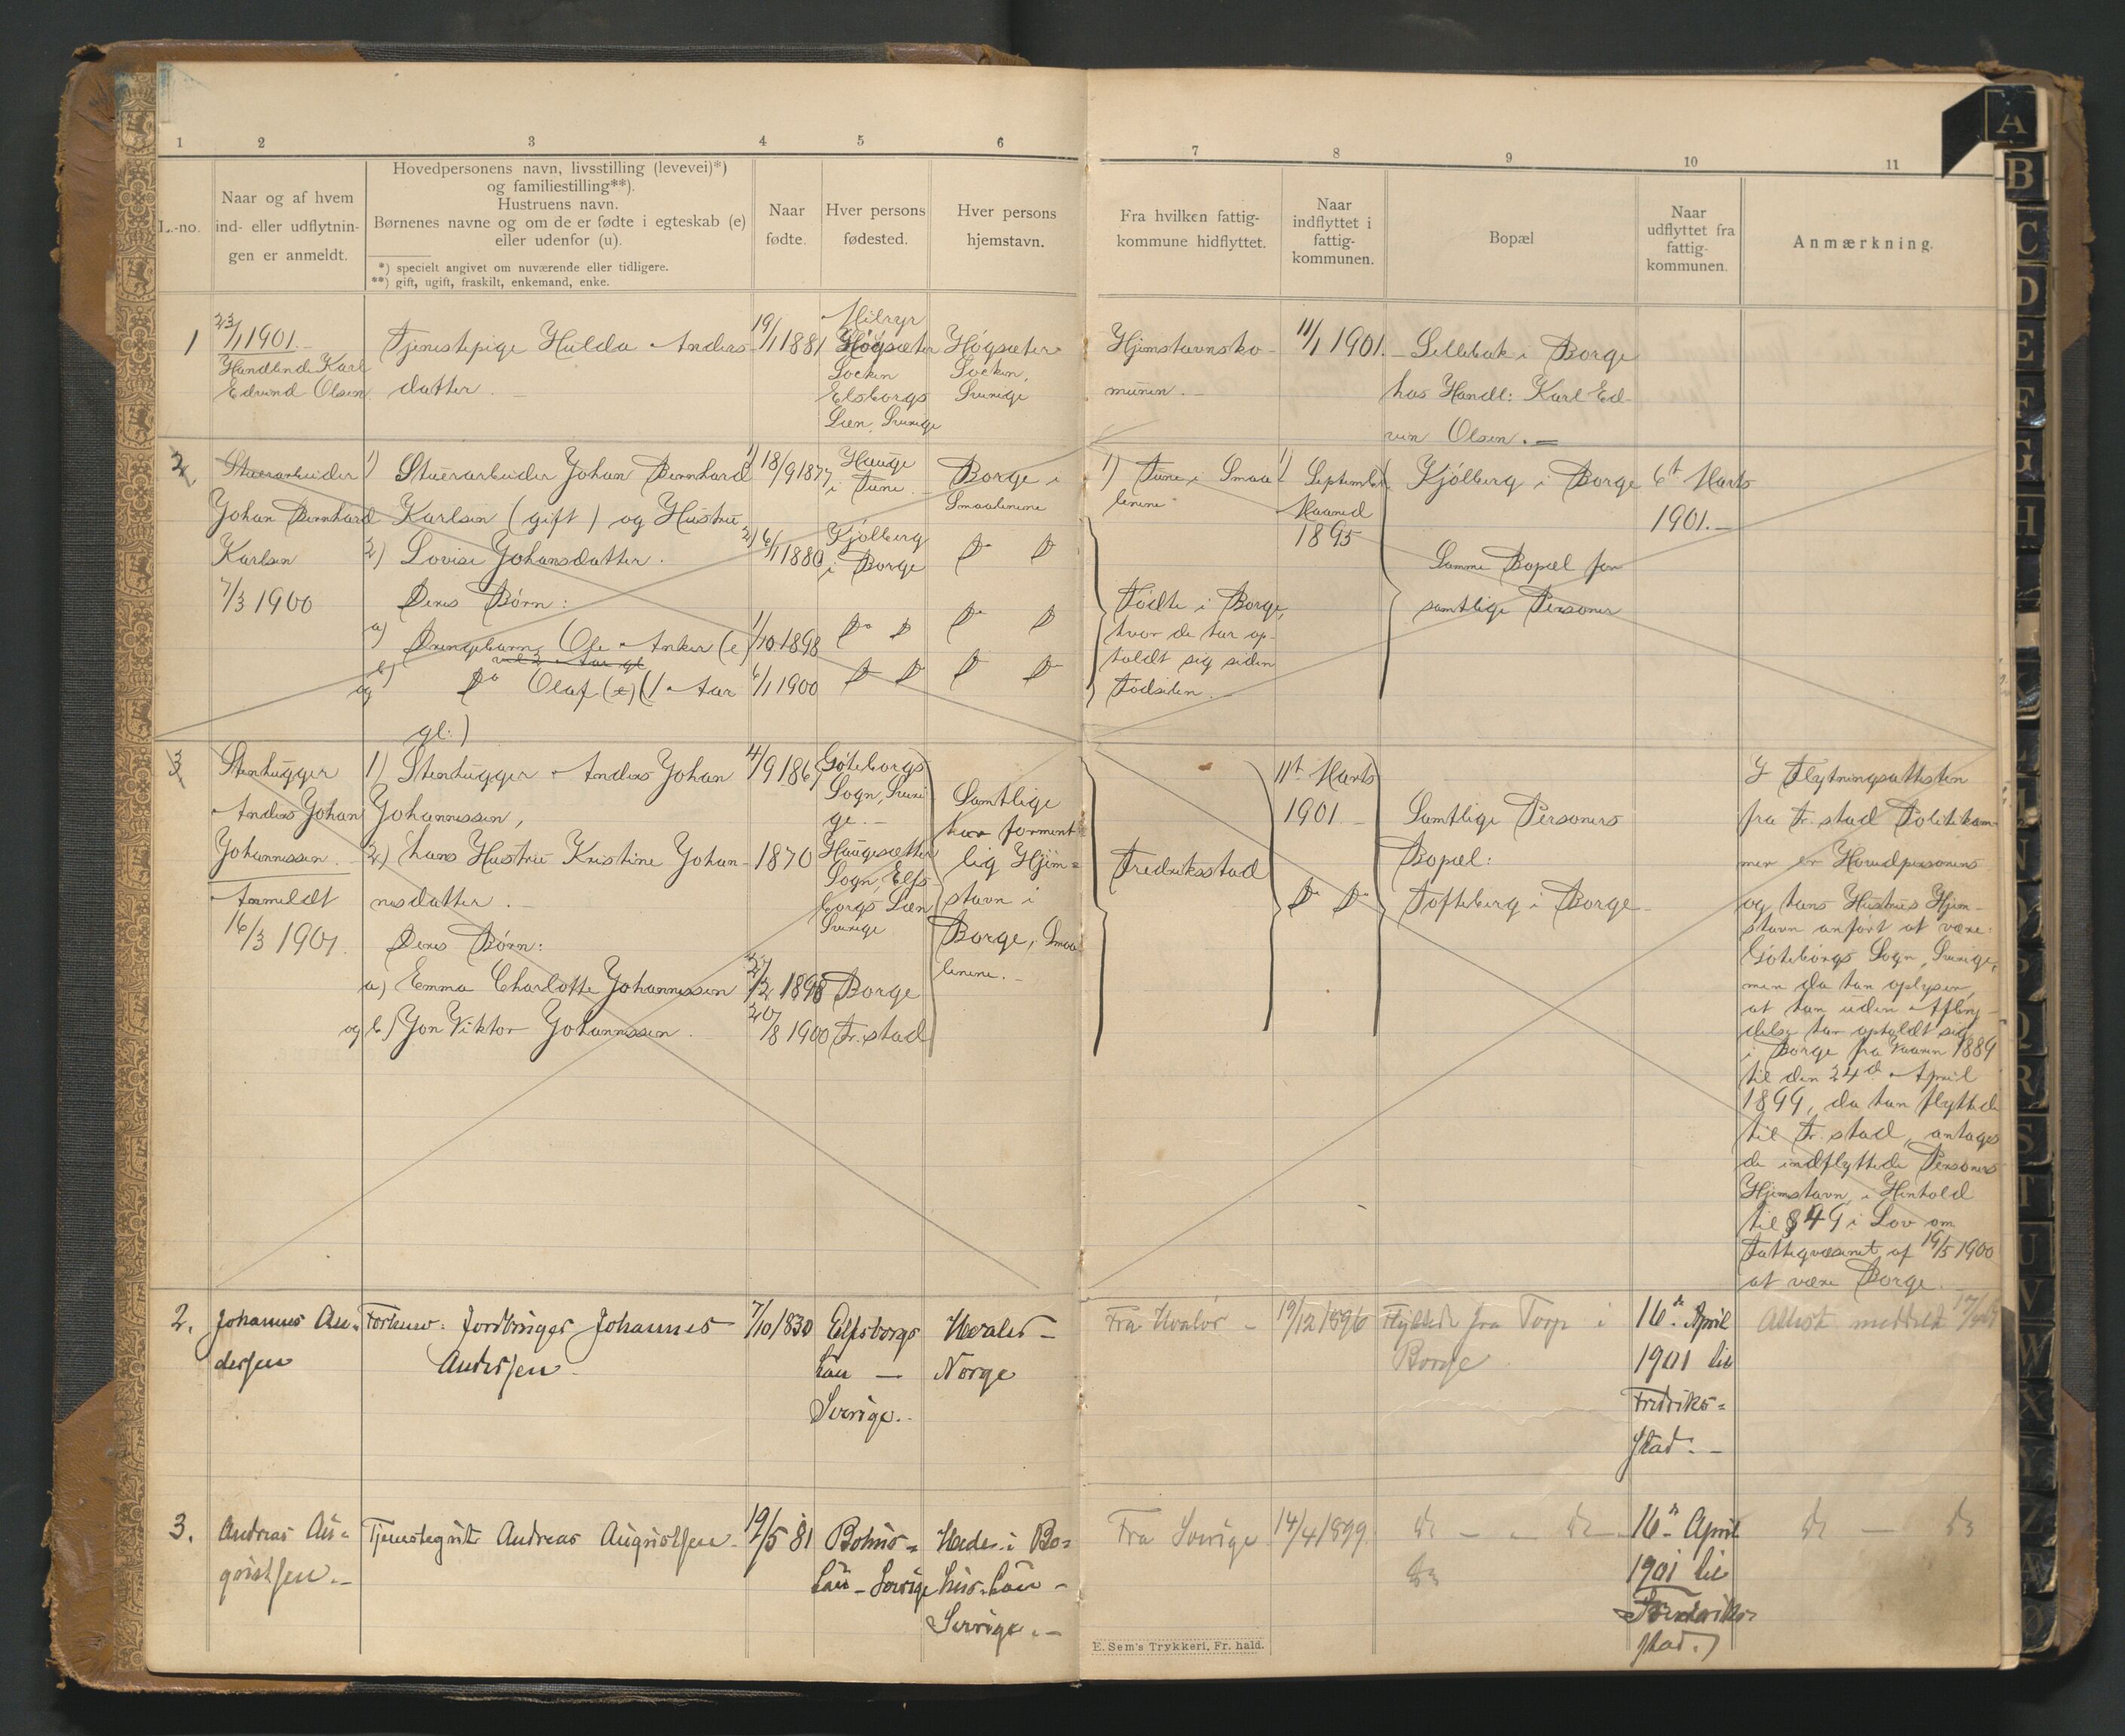 1 2 3 4 5 6 7 8 9 10 11
L.-no.
Naar og af hvem
ind- eller udflytnin-
gen er anmeldt.
Hovedpersonens navn, livsstilling (levevei)*)
og familiestilling**).
Hustruens navn.
Børnenes navne og om de er fødte i egteskab (e)
eller udenfor (u).
*) specielt angivet om nuværende eller tidligere.
**) gift, ugift, fraskilt, enkemand, enke.
Naar
fødte.
Hver persons
fødested.
Hver persons
hjemstavn.
Fra hvilken fattig-
kommune hidflyttet.
Naar
indflyttet i
fattig-
kommunen.
Bopæl
Naar
udflyttet fra
fattig-
kommunen.
Anmærkning.
1
23/1 1901.
Handlende Karl
Edvind Olsen
Tjenestepige Hulda Anders-
datter.
19/1 1881
Högsæter
Socken
Elsborgs
Læn, Sverige
Högsæter
Socken,
Sverige
Hjemstavnsko-
munen.
11/1 1901.
Sellebak i Borge
hos Handl: Karl Ed-
vin Olsen.
2.
Stuerarbeider
Johan Bernhard
Karlsen
7/3 1900
1) Stuerarbeider Johan Bernhard
Karlsen (gift) og Hustru
2) Lovise Johansdatter.
Deres Børn:
a) Drengebarn Ole Anker (e)
vel 2 Aar gl.
og b) Do Olaf (e) (1 Aar
gl:)
1) 18/9 1877
2) 6/1 1880
1/10 1898
6/1 1900
Hauge
i Tune.
Kjølberg
i Borge
Do Do
Do Do
Borge i
Smaalenene
Do Do
Do Do
Do Do
1) Tune i Smaa-
lenene
Fødte i Borge,
hvor de har op-
holdt sig siden
Fødselen.
1) September
Maaned
1895
Kjølberg i Borge
Samme Bopæl for
samtlige Personer
6t Marts
1901.
3
Stenhugger
Anders Johan
Johannessen.
Anmeldt
16/3 1901.
1) Stenhugger Anders Johan
Johannessen,
2) hans Hustru Kristine Johan-
nesdatter.
Deres Børn:
a) Emma Charlotte Johannessen
og b) Jon Viktor Johannessen.
4/9 1867
1870
27/2 1898
20/8 1900
Göteborgs
Sogn, Sveri
ge.
Haugesætter
Sogn, Elfs-
borgs Læn
Sverige
Borge
Fr. stad
Samtlige
har forment-
lig Hjem-
stavn i
Borge, Smaa
lenene.
Fredriksstad
11t Marts
1901
Do Do
Samtlige Personers
Bopæl:
Tofteberg i Borge
I Flytningsattesten
fra Fr. stad Politikam-
mer er Hovedpersonens
og hans Hustrus Hjem-
stavn anført at være:
Göteborgs Sogn, Sverige,
men da han oplyser,
at han uden Afbry-
delse har opholdt sig
i Borge fra Vaaren 1889
til den 24de April
1899, da han flyttede
til Fr. stad, antages
de indflyttede Personers
Hjemstavn, i Henhold
til § 49 i Lov om
Fattigvæsenet af 19/5 1900
at være Borge.
2.
Johannes An-
dersen
Forhenv. Jordbruger Johannes
Andersen
7/10 1830
Elfsborgs
Län —
Sverige.
Hvaler
Norge
Fra Hvaler
19/12 1896
Flyttede fra Torp i
Borge
16de April
1901 til
Fredriks-
stad.
Attest meddelt
3.
Andreas Au-
gustsen.
Tjenestegut Andreas Augustsen
19/5 81
Bohus-
Län - Sverige
Hede i Bo-
hus-Län -
Sverige.
Fra Sverige
14/4 1899.
Do — Do
Do
16de April
1901 til
Fredriks-
stad.
Do — Do
E. Sem's Trykkeri, Fr. hald.
A
B
C
D
E
F
G
H
N
O
P
Q
R
S
T
U
V
W
X
Y
Z